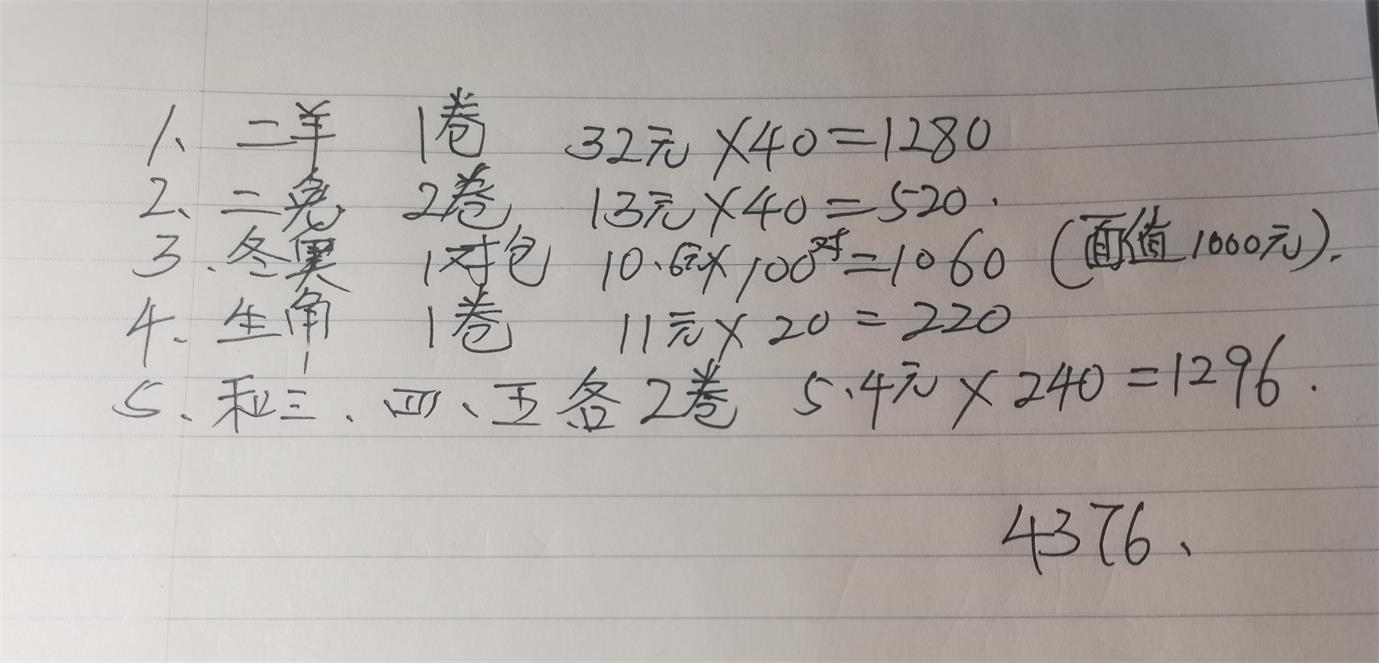 1、二羊 1卷 32元×40=1280
2、二兔 2卷 13元×40=520.
3.冬奥 1对包 10.6元×100对=1060 (面值1000元).
4、生角 1卷 11元×20=220
5、和三、四、五各2卷 5.4元×240=1296.
4376、